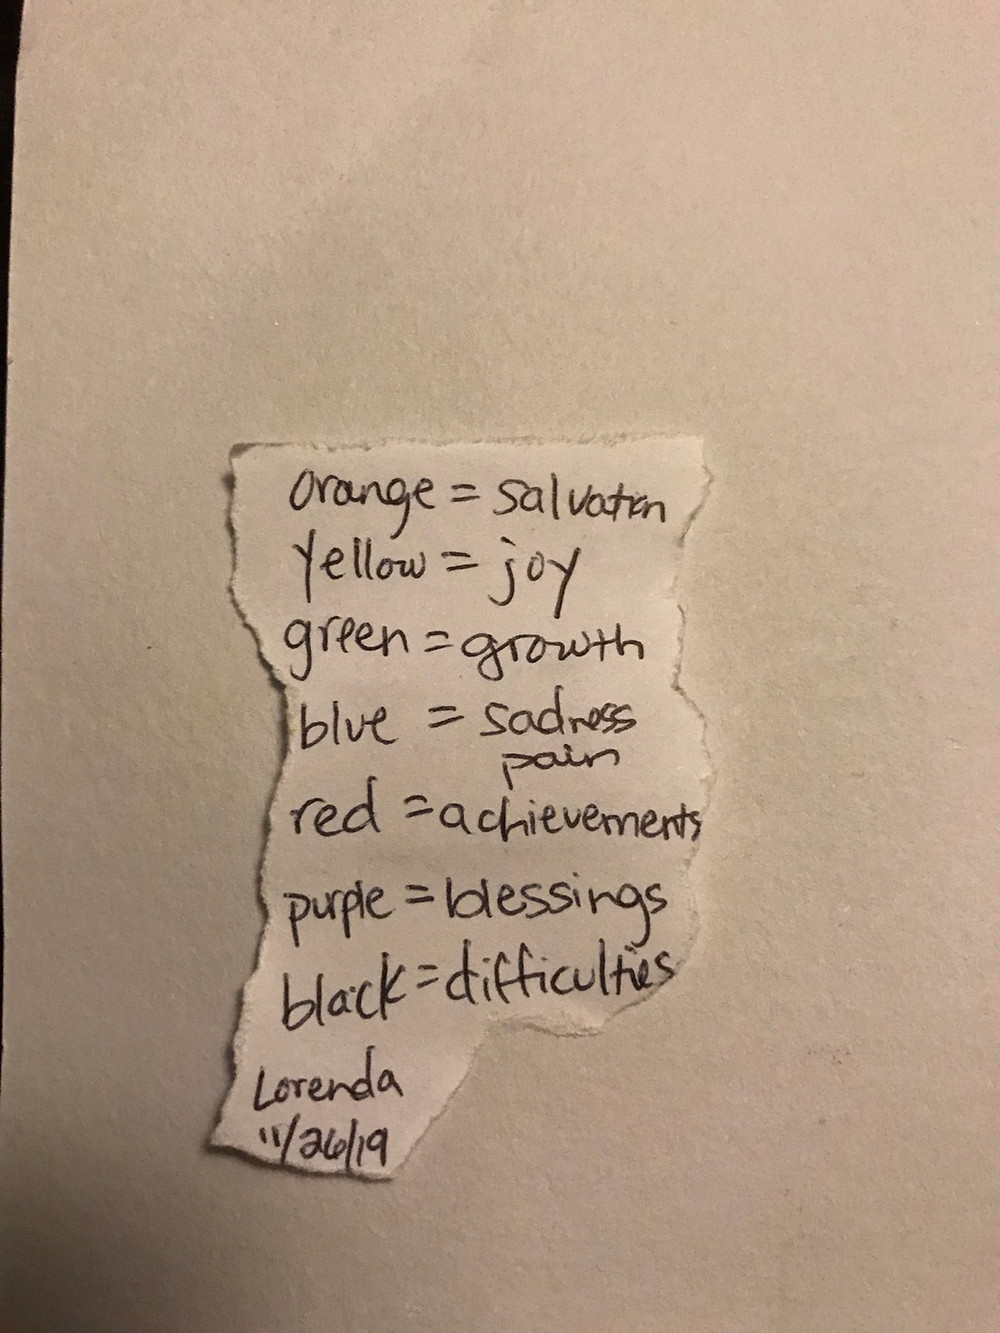 orange = salvation
yellow = joy
green = growth
blue = sadness
pain
red = achievements
purple = blessings
black = difficulties
Lorenda
11/26/19